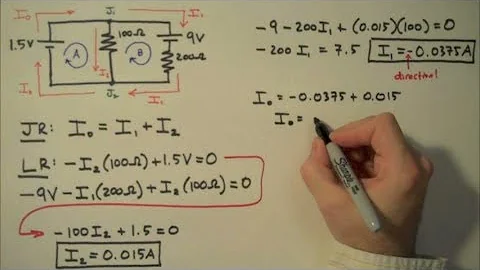 I₀ J₁ I₁
1.5V A I₂ 100Ω B 9V
200Ω
I₀ J₂ I₁
JR: I₀ = I₁ + I₂
LR: -I₂(100Ω)+1.5V=0
-9V-I₁(200Ω)+I₂(100Ω)=0
-100I₂+1.5=0
I₂=0.015A
-9-200I₁+(0.015)(100)=0
-200I₁=7.5 I₁=-0.0375A
direction!
I₀=-0.0375+0.015
I₀=
Sharpie